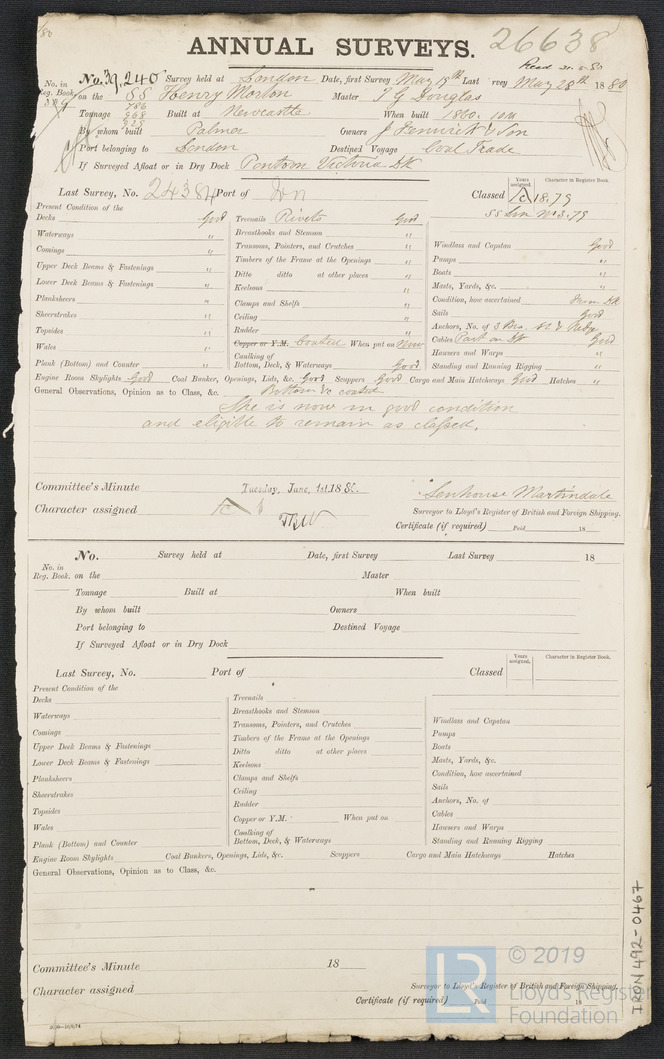 ANNUAL SURVEYS.
26638
No. 39,240 Survey held at London Date, first Survey May 19th Last Survey May 28th 1880
No. in Reg. Book. on the SS Henry Morton Master T G Douglas
786
Tonnage 668 Built at Newcastle When built 1860.
By whom built Palmer Owners J Fenwick & Son
Port belonging to London Destined Voyage Coal Trade
If Surveyed Afloat or in Dry Dock Pontoon Victoria Dk
Last Survey, No. 24384 Port of Ln Classed Years assigned. Character in Register Book.
8.79
SS Lon No3.79
Present Condition of the
Decks Good
Waterways "
Comings "
Upper Deck Beams & Fastenings "
Lower Deck Beams & Fastenings "
Planksheers "
Sheerstrakes "
Topsides "
Wales "
Plank (Bottom) and Counter "
Treenails Rivets Good
Breasthooks and Stemson "
Transoms, Pointers, and Crutches "
Timbers of the Frame at the Openings "
Ditto ditto at other places "
Keelsons "
Clamps and Shelfs "
Ceiling "
Rudder "
Copper or Y.M. Coated When put on Now
Caulking of
Bottom, Deck, & Waterways Good
Windlass and Capstan Good
Pumps "
Boats "
Masts, Yards, &c. "
Condition, how ascertained from Dk
Sails Good
Anchors, No. of 3 Bra, St & Kedge
Cables Part on Dk Good
Hawsers and Warps "
Standing and Running Rigging "
Engine Room Skylights Good Coal Bunker, Openings, Lids, &c. Good Scuppers Good Cargo and Main Hatchways Good Hatches "
General Observations, Opinion as to Class, &c. Bottom &c coated
She is now in good condition
and eligible to remain as classed.
Committee's Minute Tuesday, June, 1st 1880.
Character assigned
Senhouse Martindale
Surveyor to Lloyd's Register of British and Foreign Shipping.
Certificate (if required) Paid 18
No. Survey held at Date, first Survey Last Survey 18
No. in
Reg. Book. on the Master
Tonnage Built at When built
By whom built Owners
Port belonging to Destined Voyage
If Surveyed Afloat or in Dry Dock
Last Survey, No. Port of Classed Years assigned. Character in Register Book.
Present Condition of the
Decks
Waterways
Comings
Upper Deck Beams & Fastenings
Lower Deck Beams & Fastenings
Planksheers
Sheerstrakes
Topsides
Wales
Plank (Bottom) and Counter
Treenails
Breasthooks and Stemson
Transoms, Pointers, and Crutches
Timbers of the Frame at the Openings
Ditto ditto at other places
Keelsons
Clamps and Shelfs
Ceiling
Rudder
Copper or Y.M. When put on
Caulking of
Bottom, Deck, & Waterways
Windlass and Capstan
Pumps
Boats
Masts, Yards, &c.
Condition, how ascertained
Sails
Anchors, No. of
Cables
Hawsers and Warps
Standing and Running Rigging
Engine Room Skylights Coal Bunkers, Openings, Lids, &c. Scuppers Cargo and Main Hatchways Hatches
General Observations, Opinion as to Class, &c.
Committee's Minute 18
Character assigned
Surveyor to Lloyd's Register of British and Foreign Shipping.
Certificate (if required) Paid 18
IRON 492-0467
LR
© 2019
Lloyd's Register
Foundation